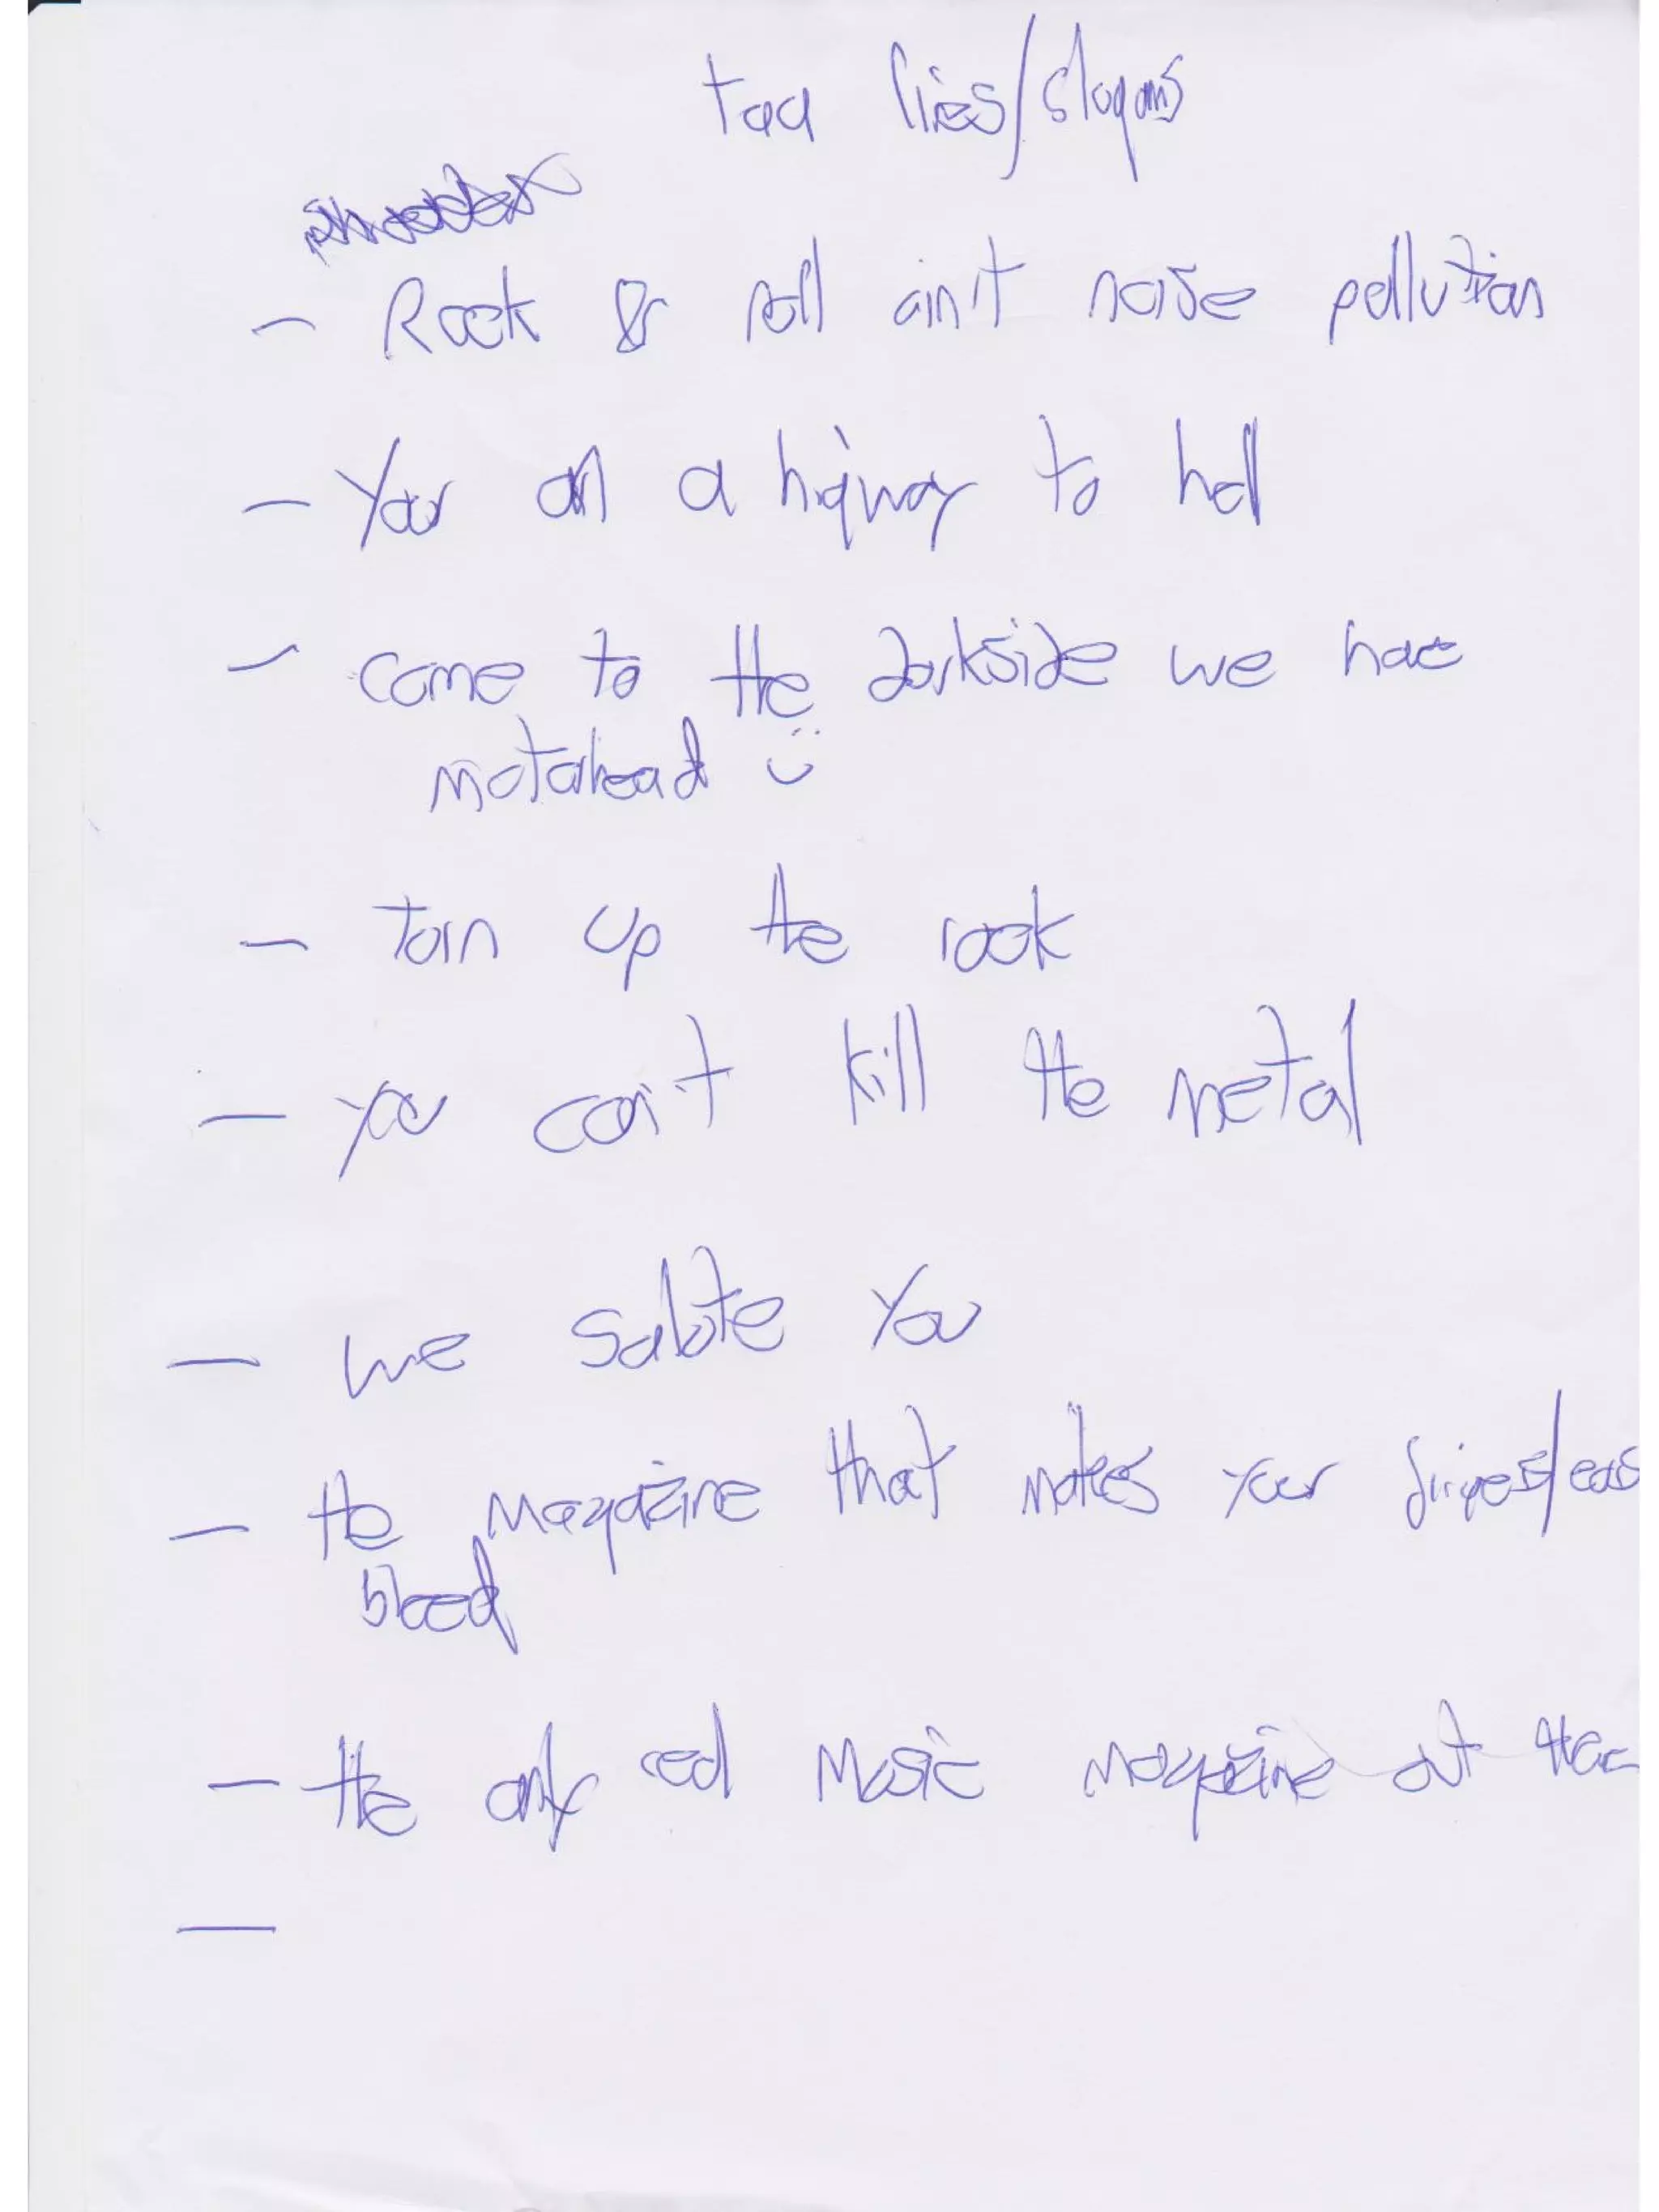 tag lines/slogans
- Rock & roll ain't noise pollution
- Your on a higway to hell
- come to the darkside we have
motorhead :)
- Turn up the rock
- you can't kill the metal
- we salute you
- the magazine that makes your fingers/ears
bleed
- the only real music magazine out there
-